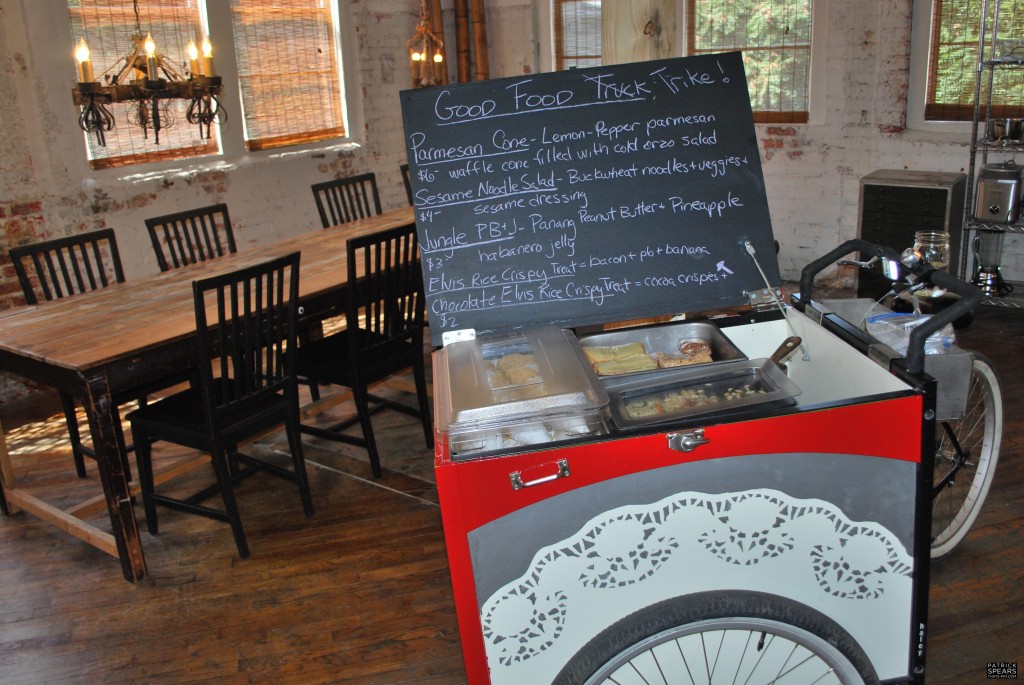 GOOD FOOD Truck, Trike!
Parmesan Cone - Lemon-Pepper parmesan
$6- waffle cone filled with cold orzo salad
Sesame Noodle Salad - Buckwheat noodles + veggies +
$4- sesame dressing
Jungle PB+J - Panang Peanut Butter + Pineapple
$3- habanero jelly
Elvis Rice Crispy Treat = bacon + pb + banana
Chocolate Elvis Rice Crispy Treat = cocoa crispies +
$2
haley
PATRICK
SPEARS
THATS-PAT.COM